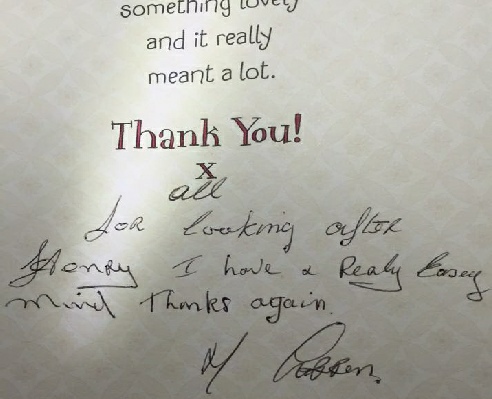 something lovely
and it really
meant a lot.
Thank You!
x
all
for looking after
Henry I have a Realy Easey
mind Thanks again.
M